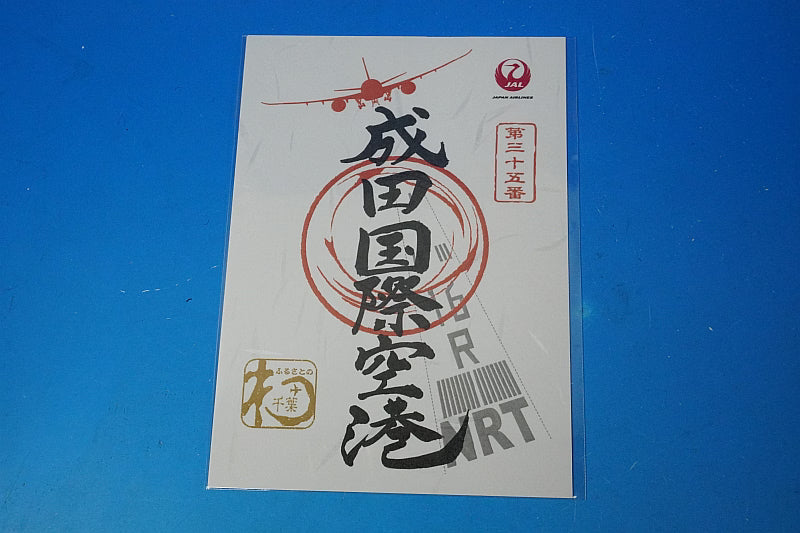 JAL
JAPAN AIRLINES
第三十五番
成田国際空港
16
R
NRT
ふるさとの
千葉